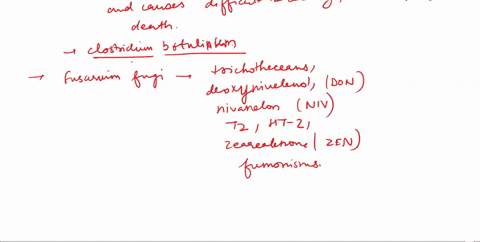 and causes difficult
death.
→ clostridium botulinum
→ Fusarium fungi → trichotheceans,
deoxynivelenol, (DON)
nivanelon (NIV)
T2, HT-2,
zearealenone (ZEN)
fumonisms.